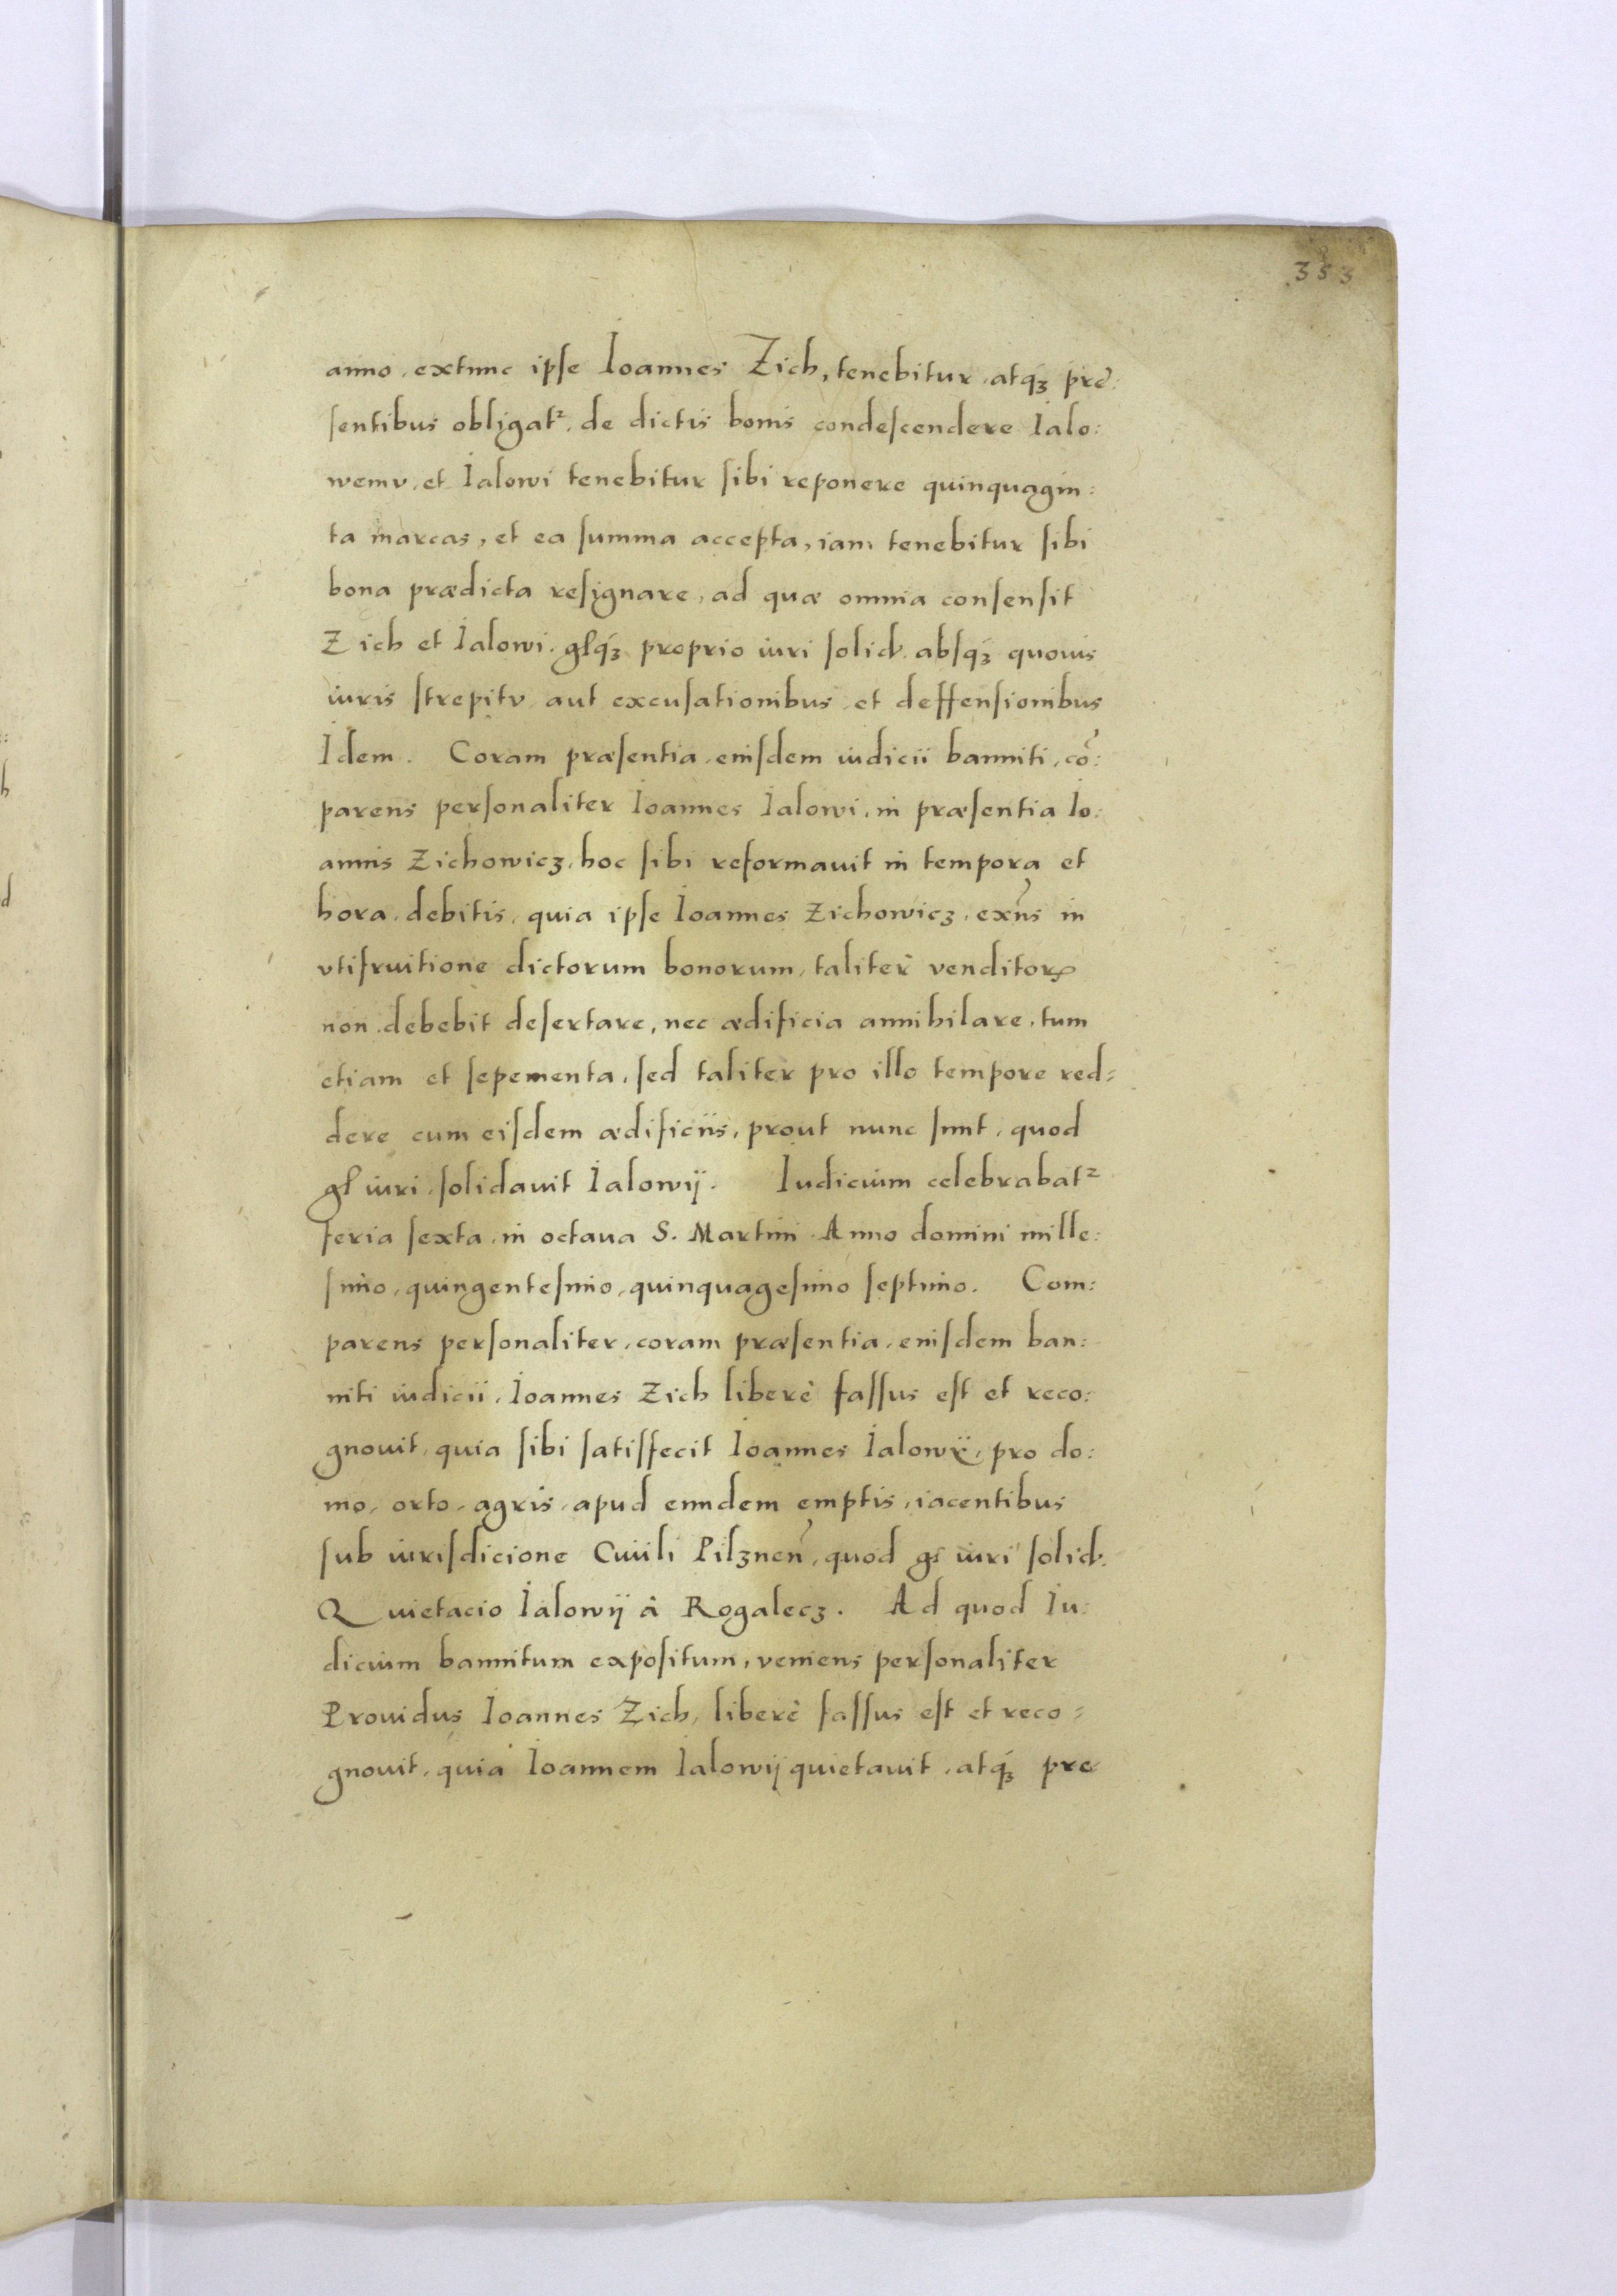 353
anno, extunc ipse Ioannes Zich, tenebitur, atq́ꝫ præ:
sentibus obligatᷣ, de dictis bonis condescendere Ialo:
wemv, et Ialowi tenebitur sibi reponere quinquagin:
ta marcas, et ea summa accepta, iam tenebitur sibi
bona prædicta resignare, ad quæ omnia consensit
Zich et Ialowi. glq́ꝫ proprio iuri solid. absq́ꝫ quouis
iuris strepitv, aut excusationibus, et deffensionibus
Idem. Coram præsentia, eiusdem iudicii banniti, cō:
parens personaliter Ioannes Ialowi, in præsentia Io:
annis Zichowicz, hoc sibi reformauit in tempora et
hora, debitis, quia ipse Ioannes Zichowicz, exn̄s in
vtifruitione dictorum bonorum, taliter̀ venditorꝝ
non debebit desertare, nec ædificia annihilare, tum
etiam et sepementa, sed taliter pro illo tempore red⸗
dere cum eisdem ædificiis, prout nunc sunt, quod
gl iuri solidauit Ialowij. Iudicium celebrabatᷣ
feria sexta, in octaua S. Martini Anno domini mille:
simo, quingentesimo, quinquagesimo septimo. Com:
parens personaliter, coram præsentia, eiusdem ban:
niti iudicii, Ioannes Zich liberè fassus est et reco:
gnouit, quia sibi satisfecit Ioannes Ialowÿ, pro do:
mo, orto, agris, apud eundem emptis, iacentibus
sub iurisdicione Ciuili Pilznen̄, quod gl iuri solid.
Quietacio Ialowij à Rogalecz. Ad quod Iu:
dicium bannitum expositum, veniens personaliter
Prouidus Ioannes Zich, liberè fassus est et reco⸗
gnouit, quia Ioannem Ialowij quietauit, atq́ꝫ præ